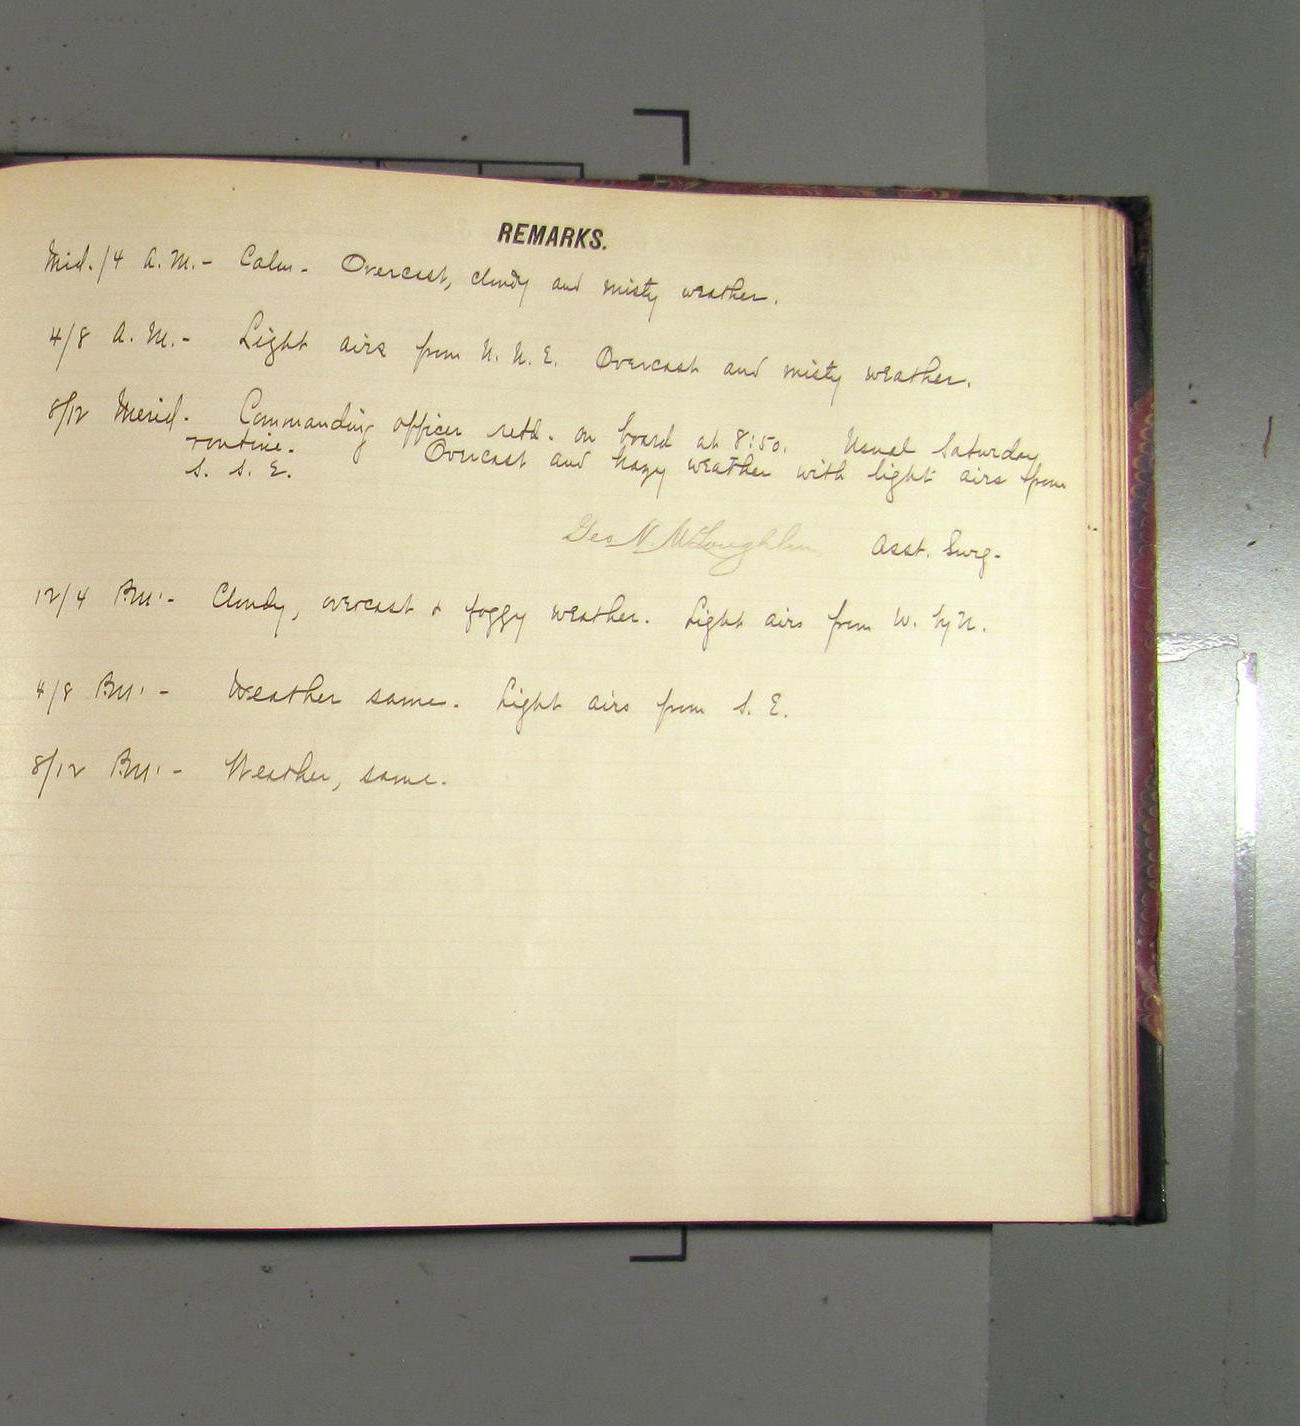 REMARKS.
Mid./4 A.M.- Calm. Overcast, cloudy and misty weather.
4/8 A.M.- Light airs from N.N.E. Overcast and misty weather.
8/12 Merid. Commanding officer retd. on board at 8:50. Usual Saturday
routine. Overcast and hazy weather with light airs from
S. S. E.
Geo N. McLoughlin Asst. Surg.
12/4 P.M.- Cloudy, overcast & foggy weather. Light airs from W. by N.
4/8 P.M.- Weather same. Light airs from S. E.
8/12 P.M.- Weather, same.